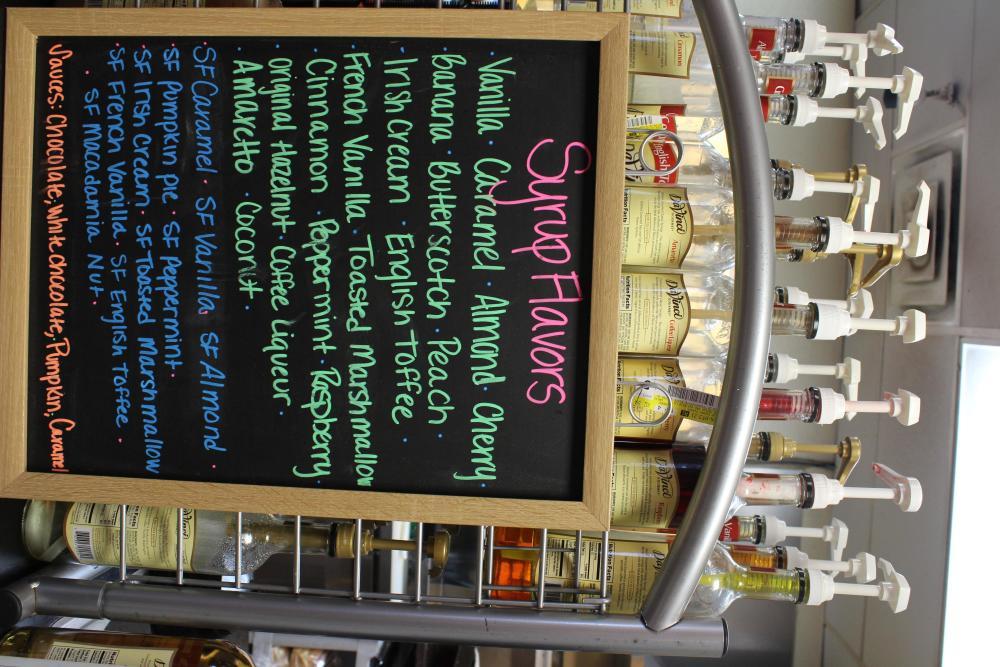 Syrup Flavors
Vanilla · Caramel · Almond Cherry
Banana · Butterscotch · Peach ·
· Irish Cream · English Toffee ·
French Vanilla · Toasted Marshmallow
· Cinnamon · Peppermint · Raspberry
original Hazelnut Coffee Liqueur ·
· Amaretto · Coconut ·
· SF Caramel · SF Vanilla SF Almond ·
· SF Pumpkin pie · SF Peppermint ·
SF Irish Cream · SF Toasted Marshmallow
· SF French Vanilla · SF English Toffee ·
· SF Macadamia Nut ·
Sauces: Chocolate, White chocolate, Pumpkin, Caramel
DaVinci
DaVinci
DaVinci
DaVinci